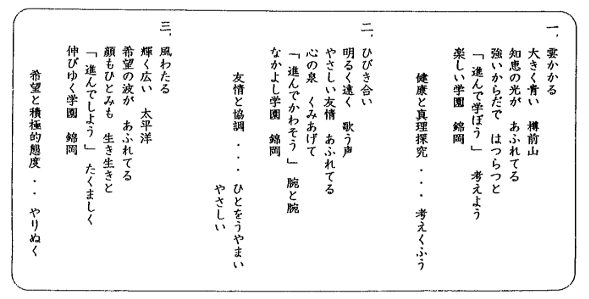 一、雲かかる
大きく青い　樽前山
知恵の光が　あふれてる
強いからだで　はつらつと
「進んで学ぼう」　考えよう
楽しい学園　錦岡
健康と真理探究・・・考えくふう
二、ひびき合い
明るく遠く　歌う声
やさしい友情　あふれてる
心の泉　くみあげて
「進んでかわそう」腕と腕
なかよし学園　錦岡
友情と協調・・・ひとをうやまい
やさしい
三、風わたる
輝く広い　太平洋
希望の波が　あふれてる
顔もひとみも　生き生きと
「進んでしよう」　たくましく
伸びゆく学園　錦岡
希望と積極的態度・・やりぬく